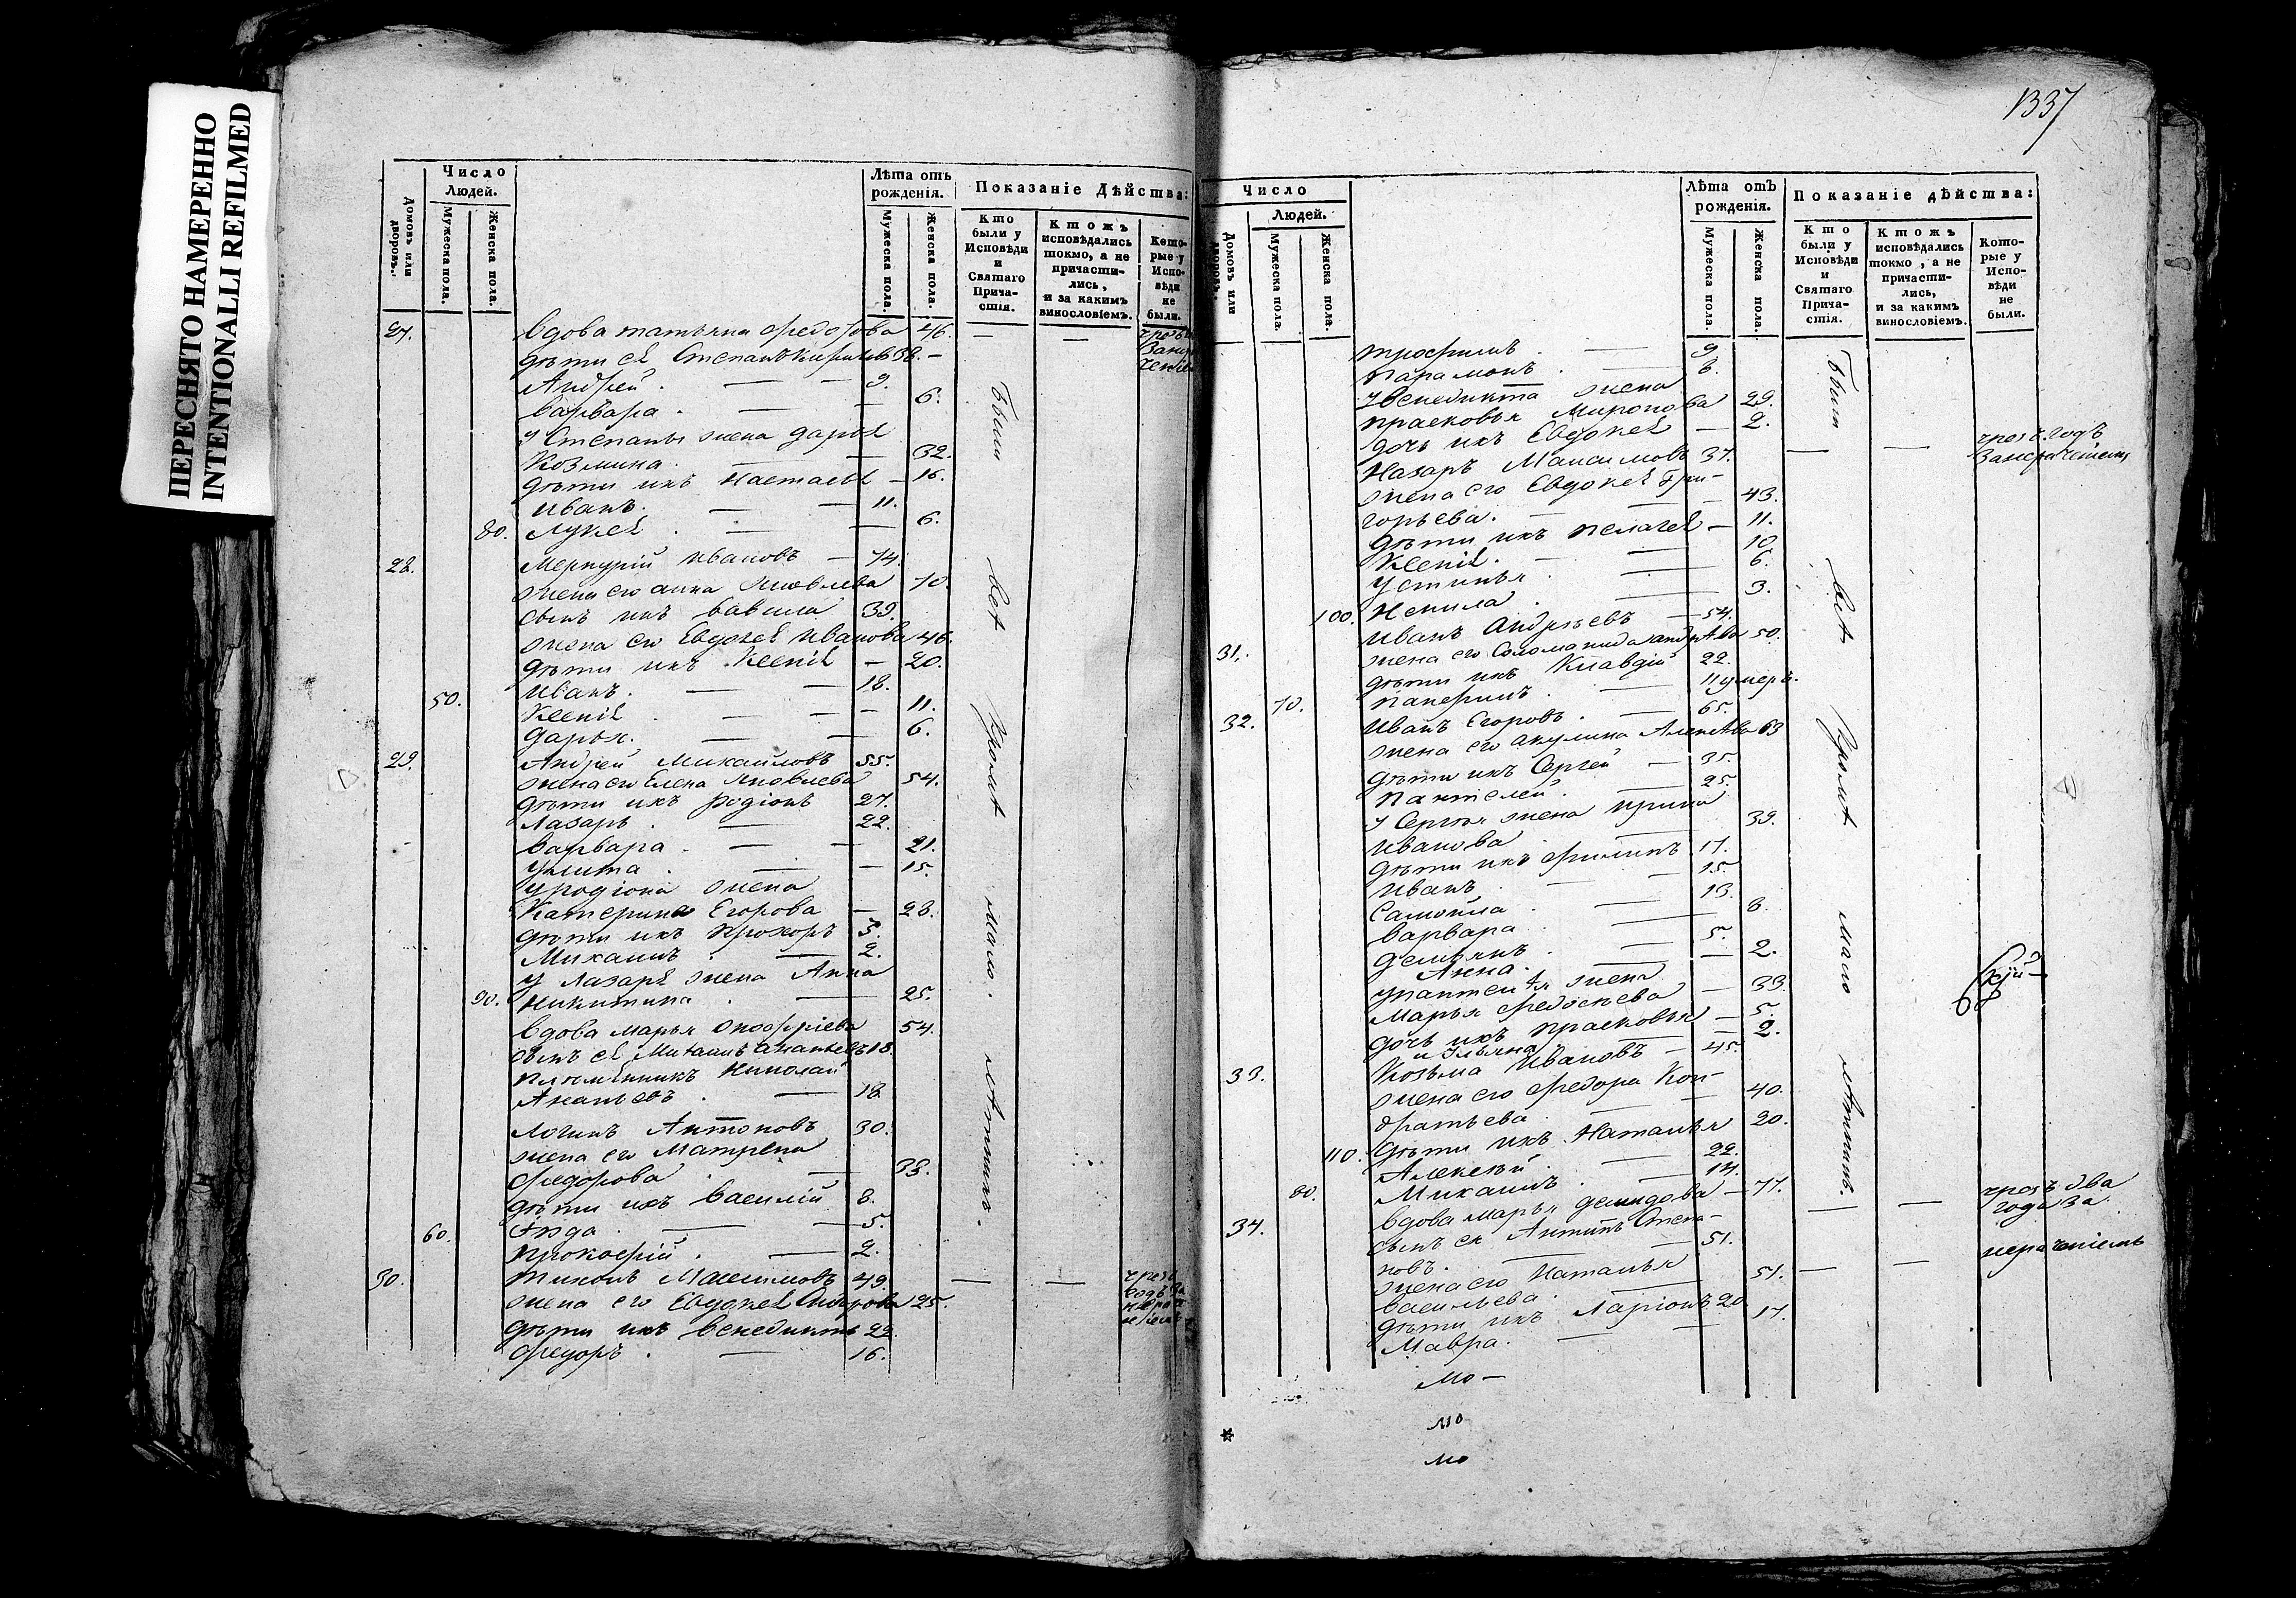 ПЕРЕСНЯТО НАМЕРЕННО
INTENTIONALLI REFILMED
Число
Людей.
Лѣта отъ
рожденія.
Показаніе Дѣйства:
Домовъ или
дворовъ.
Мужеска пола.
Женска пола.
Мужеска пола.
Женска пола.
Кто
были у
Исповѣди
и
Святаго
Прича-
стія.
Ктожъ
исповѣдались
токмо, а не
причасти-
лись,
и за какимъ
винословіемъ.
Кото-
рые у
Испо-
вѣди
не
были.
27. вдова татьяна федотова 46. — —
дѣти ея Степанъ 38. —
Андрей . — — 9.
варвара . — — 6.
у Степана жена дарья
Козмина . — — 32.
дѣти ихъ Настасья — 16.
иванъ . — — 11.
80. Лукея . — — 6.
28. Меркурій ивановъ — 74.
жена его анна Яковлева 70.
сынъ ихъ вавила 39.
жена его Евдокея иванова 46.
дѣти ихъ Ксенія — 20.
50. иванъ . — — 18.
Ксенія . — — 11.
дарья . — — 6.
29. Андрей Михайловъ 55.
жена его Елена Яковлева 54.
дѣти ихъ родіонъ 27.
Лазарь . — 22.
варвара . — — 21.
улита . — — 15.
у родіона жена
Катерина Егорова — 28.
дѣти ихъ прохоръ 5.
Михаилъ . — 2.
у Лазаря жена Анна
90. никитина . — 25.
вдова марья онофріева 54.
сынъ ея Михаилъ ананьевъ 18.
племянникъ николай
Ананьевъ . — 18.
Логинъ Антоновъ 30.
жена его Матрена
федорова . — 38.
дѣти ихъ василій 8.
60. — — 5.
прокофій . — 2.
30. тихонъ Максимовъ 49. — —
жена его Евдокея 25.
дѣти ихъ венедиктъ 22.
федоръ . — 16.
Были всѣ кромѣ мало лѣтнихъ.
1337
Число
Людей.
Лѣта отъ
рожденія.
Показаніе дѣйства:
Домовъ или
дворовъ.
Мужеска пола.
Женска пола.
Мужеска пола.
Женска пола.
Кто
были у
Исповѣди
и
Святаго
Прича-
стія.
Ктожъ
исповѣдались
токмо, а не
причасти-
лись,
и за какимъ
винословіемъ.
Кото-
рые у
Испо-
вѣди
не
были.
трофимъ . — 9
парамонъ . — 6.
у венедикта жена
прасковья Миронова 29.
дочь ихъ Евдокея — 2.
Назаръ Максимовъ 37. — — чрезъ годъ
за нераченіемъ
жена его Евдокея Гри-
горьева . — — 43.
дѣти ихъ пелагея — 11.
Ксенія . — — 10.
устинья . — 6.
100. Ненила . — 3.
31. иванъ Андреевъ — 54.
жена его Соломанида 50.
дѣти ихъ Клавдій 22.
70. панфилъ . — 11 умеръ.
32. иванъ Егоровъ . — 65.
жена его акулина 63
дѣти ихъ Сергей — 35.
пантелей . — 25.
у Сергѣя жена ирина
иванова . — 39.
дѣти ихъ филипъ 17.
иванъ . — — 15.
Самойла . — 13.
варвара . — 8.
демьянъ . — 5.
Анна . — — 2.
у пантелѣя жена
Марья — 33.
дочь ихъ прасковья — 5.
и ульяна — 2.
33. Козьма ивановъ — 45.
жена его федора Кон-
дратьева . — — 40.
110. дѣти ихъ Наталья 20.
Алексѣй . — 22.
80. Михаилъ . — 14.
34. вдова марья демидова — 77. — — чрезъ два
года за
нераченіемъ
сынъ ея Антипъ Степа-
новъ . — — 51.
жена его Наталья
васильева . — 51. — —
дѣти ихъ Ларіонъ 20
Мавра . — — 17.
Были всѣ кромѣ мало лѣтнихъ.
мо —
мо
мо
*